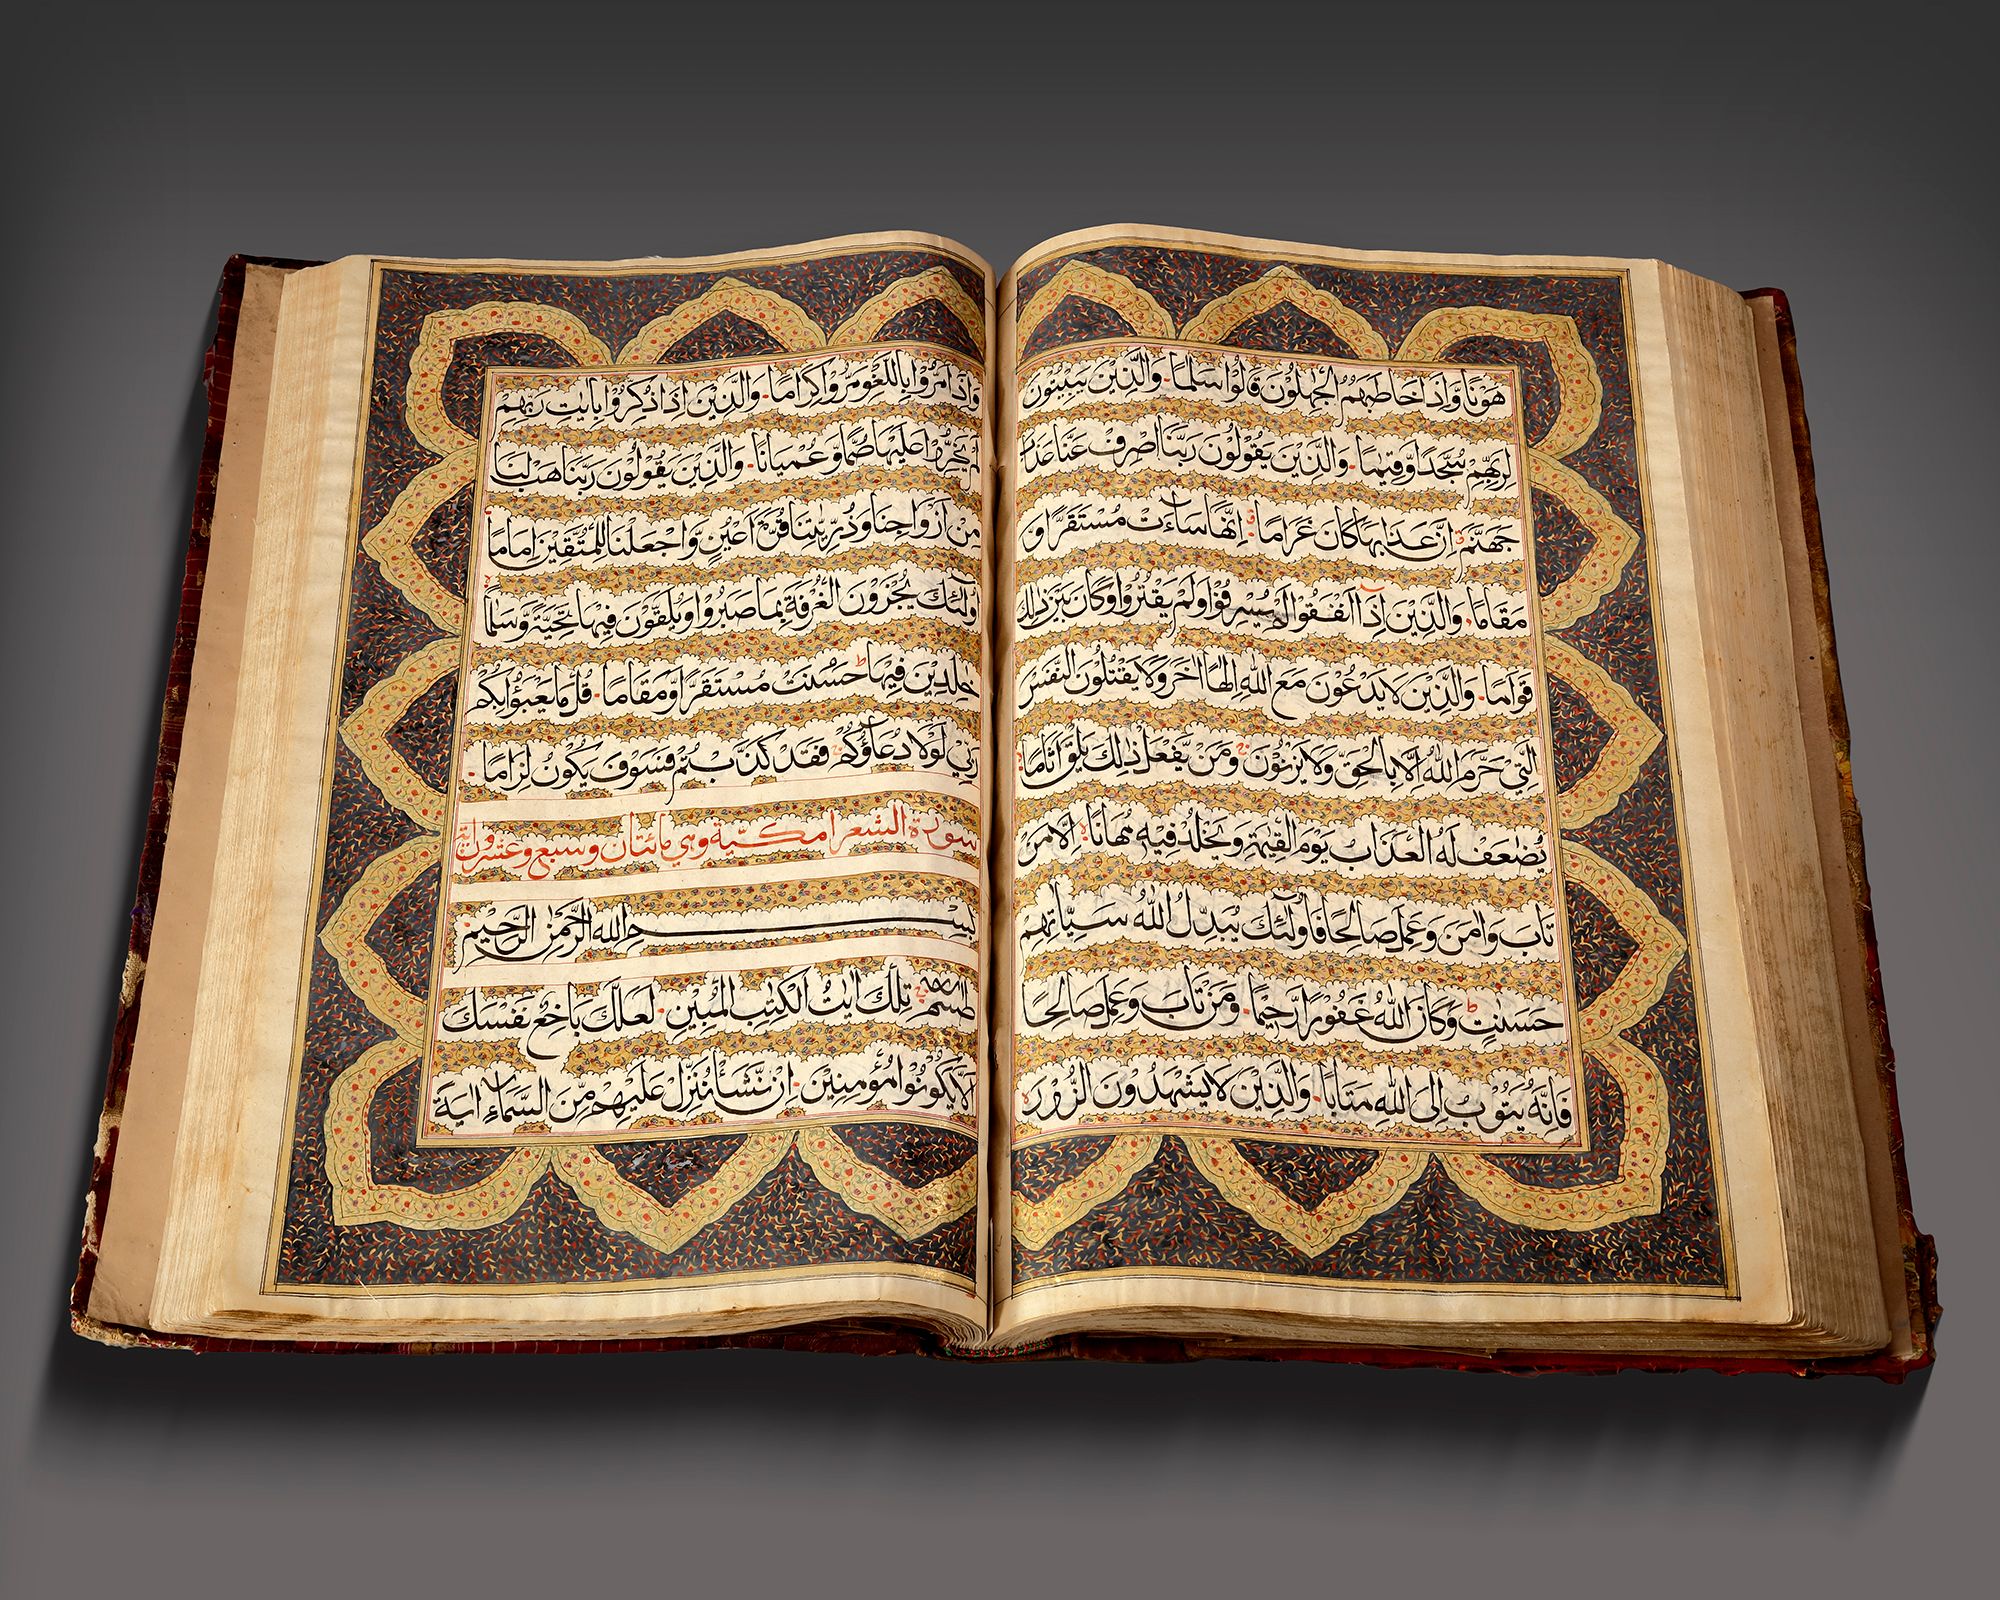 هَوْنًا وَّاِذَا خَاطَبَهُمُ الْجٰهِلُوْنَ قَالُوْا سَلٰمًا وَالَّذِيْنَ يَبِيْتُوْنَ
لِرَبِّهِمْ سُجَّدًا وَّقِيَامًا وَالَّذِيْنَ يَقُوْلُوْنَ رَبَّنَا اصْرِفْ عَنَّا عَذَابَ
جَهَنَّمَ اِنَّ عَذَابَهَا كَانَ غَرَامًا اِنَّهَا سَاءَتْ مُسْتَقَرًّا وَّ
مُقَامًا وَالَّذِيْنَ اِذَا اَنْفَقُوْا لَمْ يُسْرِفُوْا وَلَمْ يَقْتُرُوْا وَكَانَ بَيْنَ ذٰلِكَ
قَوَامًا وَالَّذِيْنَ لَا يَدْعُوْنَ مَعَ اللّٰهِ اِلٰهًا اٰخَرَ وَلَا يَقْتُلُوْنَ النَّفْسَ
الَّتِيْ حَرَّمَ اللّٰهُ اِلَّا بِالْحَقِّ وَلَا يَزْنُوْنَ وَمَنْ يَّفْعَلْ ذٰلِكَ يَلْقَ اَثَامًا
يُّضٰعَفْ لَهُ الْعَذَابُ يَوْمَ الْقِيٰمَةِ وَيَخْلُدْ فِيْهٖ مُهَانًا اِلَّا مَنْ
تَابَ وَاٰمَنَ وَعَمِلَ صَالِحًا فَاُولٰٓئِكَ يُبَدِّلُ اللّٰهُ سَيِّاٰتِهِمْ
حَسَنٰتٍ وَكَانَ اللّٰهُ غَفُوْرًا رَّحِيْمًا وَمَنْ تَابَ وَعَمِلَ صَالِحًا
فَاِنَّهٗ يَتُوْبُ اِلَى اللّٰهِ مَتَابًا وَالَّذِيْنَ لَا يَشْهَدُوْنَ الزُّوْرَ
وَاِذَا مَرُّوْا بِاللَّغْوِ مَرُّوْا كِرَامًا وَالَّذِيْنَ اِذَا ذُكِّرُوْا بِاٰيٰتِ رَبِّهِمْ
لَمْ يَخِرُّوْا عَلَيْهَا صُمًّا وَّعُمْيَانًا وَالَّذِيْنَ يَقُوْلُوْنَ رَبَّنَا هَبْ لَنَا
مِنْ اَزْوَاجِنَا وَذُرِّيّٰتِنَا قُرَّةَ اَعْيُنٍ وَّاجْعَلْنَا لِلْمُتَّقِيْنَ اِمَامًا
اُولٰٓئِكَ يُجْزَوْنَ الْغُرْفَةَ بِمَا صَبَرُوْا وَيُلَقَّوْنَ فِيْهَا تَحِيَّةً وَّسَلٰمًا
خٰلِدِيْنَ فِيْهَا حَسُنَتْ مُسْتَقَرًّا وَّمُقَامًا قُلْ مَا يَعْبَؤُا بِكُمْ
رَبِّيْ لَوْلَا دُعَاؤُكُمْ فَقَدْ كَذَّبْتُمْ فَسَوْفَ يَكُوْنُ لِزَامًا
سورة الشعرا مكية وهي مائتان وسبع وعشرون اية
بِسْمِ اللهِ الرَّحْمٰنِ الرَّحِيْمِ
طٰسٓمّٓ تِلْكَ اٰيٰتُ الْكِتٰبِ الْمُبِيْنِ لَعَلَّكَ بَاخِعٌ نَّفْسَكَ
اَلَّا يَكُوْنُوْا مُؤْمِنِيْنَ اِنْ نَّشَاْ نُنَزِّلْ عَلَيْهِمْ مِّنَ السَّمَاءِ اٰيَةً